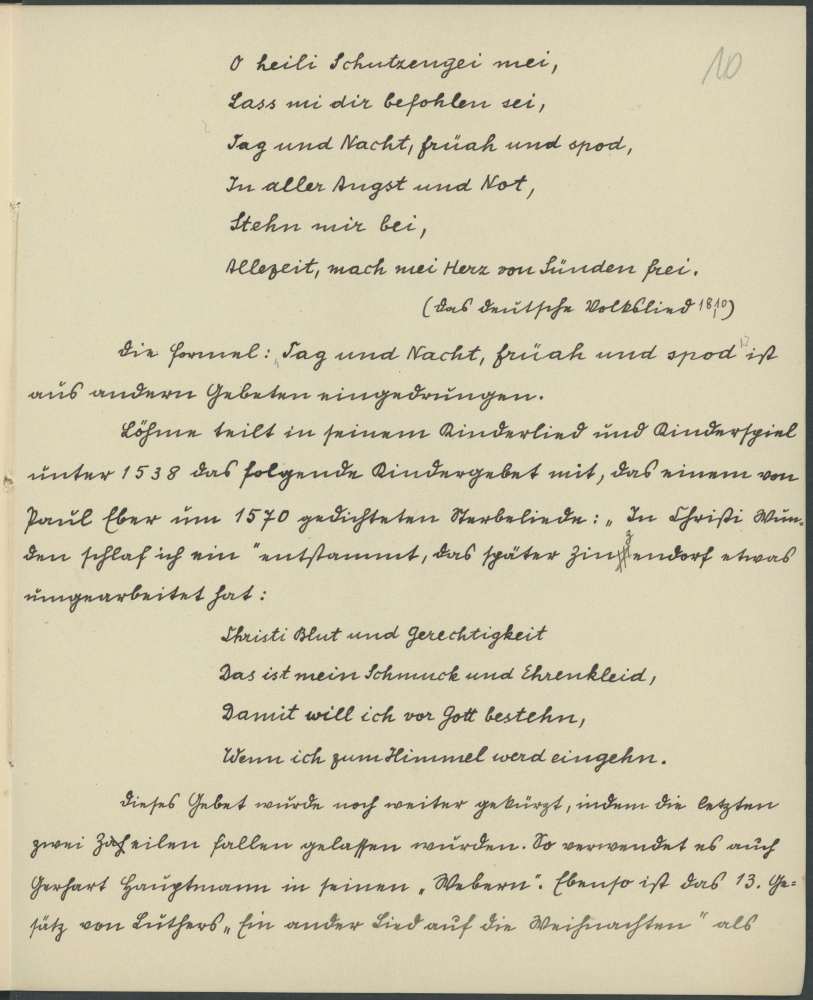 10
O heili Schutzengei mei,
Lass mi dir befohlen sei,
Tag und Nacht, früah und spod,
In aller Angst und Not,
Stehn mir bei,
Allezeit, mach mei Herz von Sünden frei.
(Das deutsche Volkslied 18,10)
Die Formel: „Tag und Nacht, früah und spod" ist
aus andern Gebeten eingedrungen.
Böhme teilt in seinem Kinderlied und Kinderspiel
unter 1538 das folgende Kindergebet mit, das einem von
Paul Eber um 1570 gedichteten Sterbeliede: „In Christi Wun-
den schlaf ich ein" entstammt, das später Zinzendorf etwas
umgearbeitet hat:
Christi Blut und Gerechtigkeit
Das ist mein Schmuck und Ehrenkleid,
Damit will ich vor Gott bestehn,
Wenn ich zum Himmel werd eingehn.
Dieses Gebet wurde noch weiter gekürzt, indem die letzten
zwei Zeilen fallen gelassen wurden. So verwendet es auch
Gerhart Hauptmann in seinen „Webern". Ebenso ist das 13. Ge=
sätz von Luthers „Ein ander Lied auf die Weihnachten" als